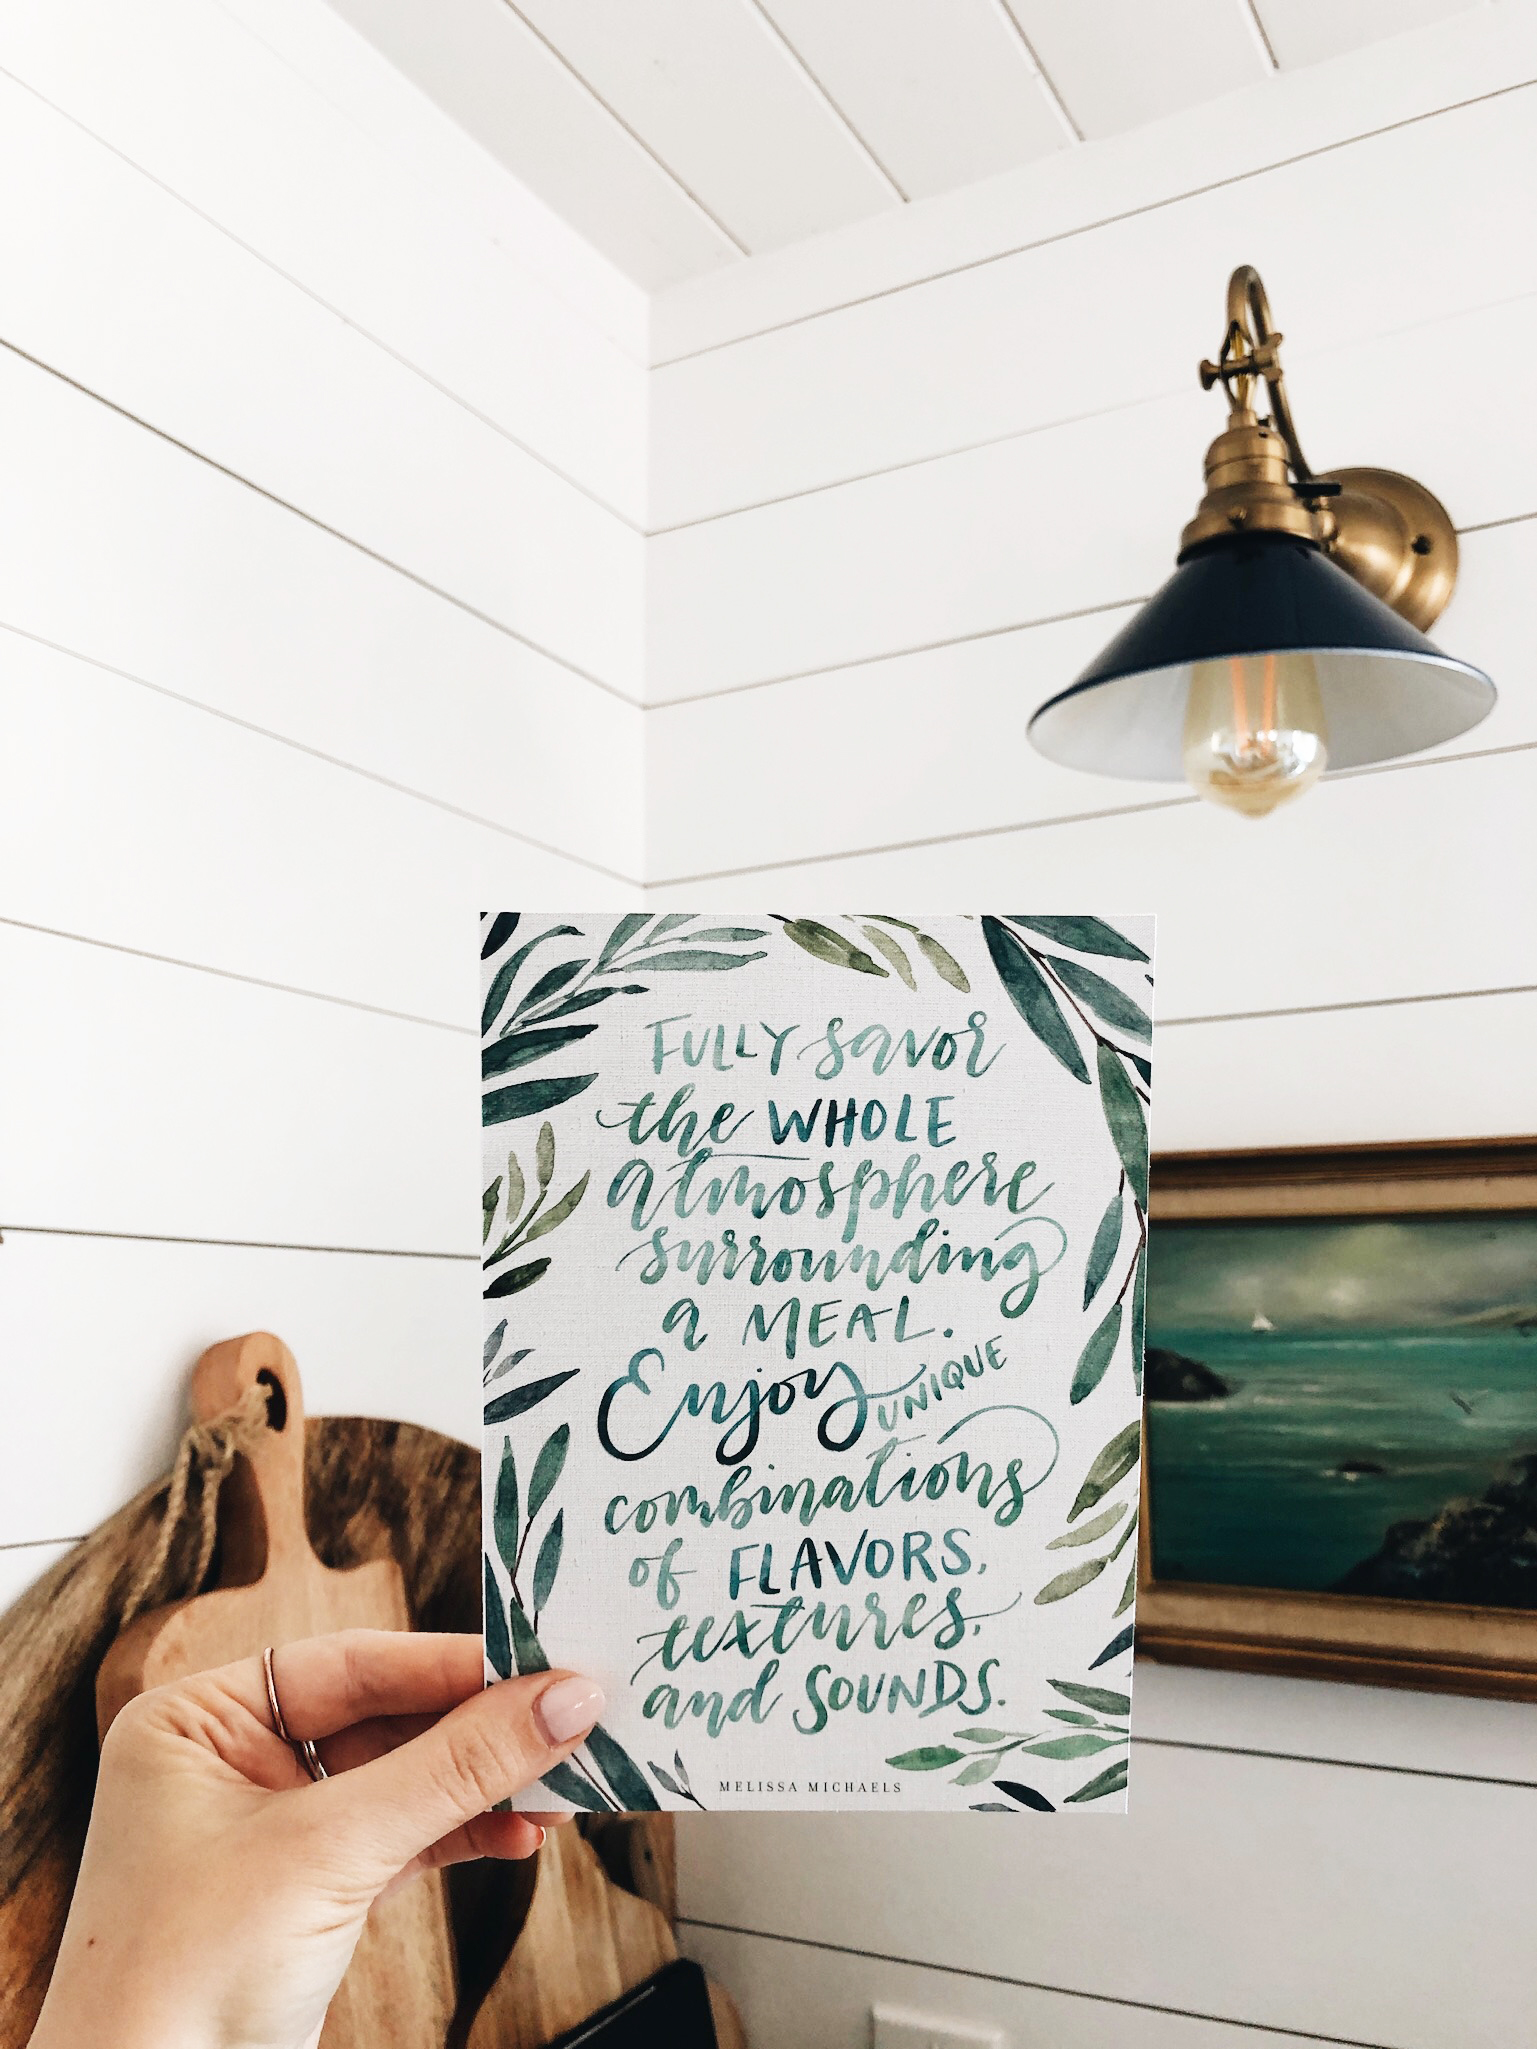 FULLY savor
the WHOLE
atmosphere
surrounding
a MEAL.
Enjoy UNIQUE
combinations
of FLAVORS,
textures,
and SOUNDS.
MELISSA MICHAELS